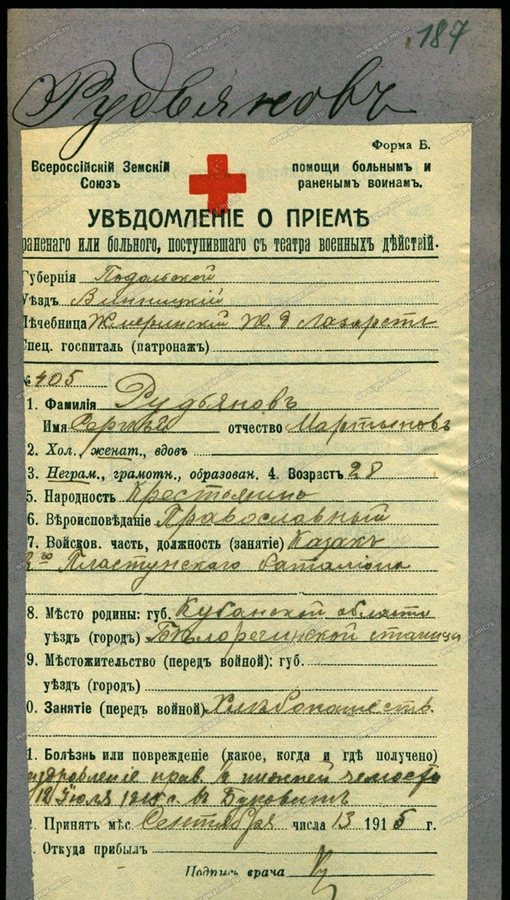 187
Рудьяновъ
Форма Б.
Всероссійскій Земскій помощи больнымъ и
Союзъ раненымъ воинамъ.
УВѢДОМЛЕНІЕ О ПРІЕМѢ
раненаго или больного, поступившаго съ театра военныхъ дѣйствій.
Губернія Подольской
Уѣздъ Винницкій
Лѣчебница Жмеринскій Ж. д лазаретъ
Спец. госпиталь (патронажъ)
№ 405
1. Фамилія Рудьяновъ
Имя Сергѣй отчество Мартыновъ
2. Хол., женат., вдовъ
3. Неграм., грамотн., образован. 4. Возрастъ 28
5. Народность Крестьянинъ
6. Вѣроисповѣданіе Православный
7. Войсков. часть, должность (занятіе) Казакъ
Пластунскаго баталіона
8. Мѣсто родины: губ. Кубанской области
уѣздъ (городъ) Бѣлореченской станицы
9. Мѣстожительство (передъ войной): губ.
уѣздъ (городъ)
0. Занятіе (передъ войной) Хлѣбопашествъ
1. Болѣзнь или поврежденіе (какое, когда и гдѣ получено)
раздробленіе прав. 1/2 нижней челюсти
12 Іюля 1915 г. въ Буковинѣ
Принятъ мѣс. Сентября числа 13 1915 г.
Откуда прибылъ
Подпись врача
www.gwar.mil.ru